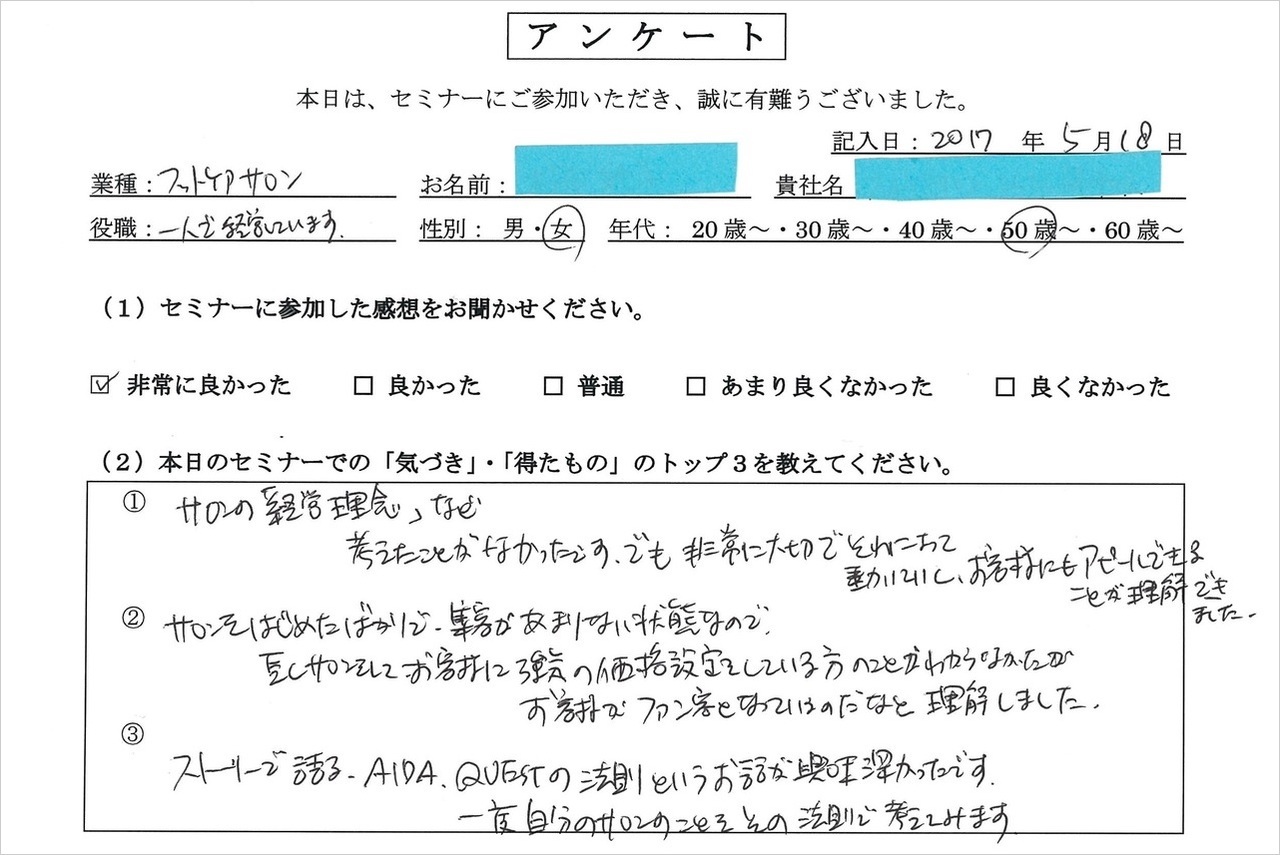 アンケート
本日は、セミナーにご参加いただき、誠に有難うございました。
記入日：2017 年 5月18日
業種：フットケアサロン お名前： 貴社名
役職：一人で経営しています。 性別： 男・女 年代： 20歳～・30歳～・40歳～・50歳～・60歳～
（1）セミナーに参加した感想をお聞かせください。
☑ 非常に良かった □ 良かった □ 普通 □ あまり良くなかった □ 良くなかった
（2）本日のセミナーでの「気づき」・「得たもの」のトップ3を教えてください。
① サロンの「経営理念」など
考えたことがなかったです。でも非常に大切でそれにそって
動いていし、お客様にもアピールできる
ことが理解でき
ました。
② サロンをはじめたばかりで、集客があまりない状態なので、
サロンをしてお客様に の価格設定をしている方のことがわからなかったが
お客様がファン客となっているのだなと理解しました。
③ ストーリーで語る、AIDA、QUESTの法則というお話が興味深かったです。
一度自分のサロンのことをその法則で考えてみます